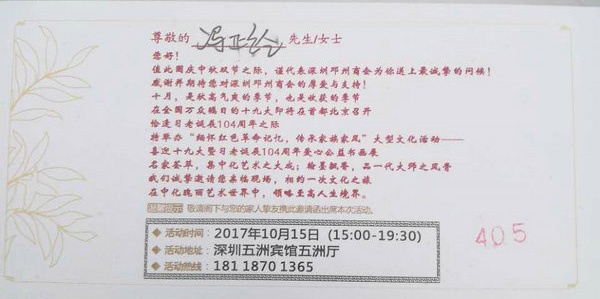 尊敬的 冯正 先生/女士
您好！
值此国庆中秋双节之际，谨代表深圳邓州商会为你送上最诚挚的问候！
感谢并期待您对深圳邓州商会的厚爱与支持！
十月，是秋高气爽的季节，也是收获的季节
在全国万众瞩目的十九大即将在首都北京召开
恰逢习老诞辰104周年之际
特举办“缅怀红色革命记忆，传承家族家风”大型文化活动——
喜迎十九大暨习老诞辰104周年爱心公益书画展
名家荟萃，集中化艺术之大成；翰墨飘香，品一代大师之风骨
我们诚挚邀请您来临现场，相约一次文化之旅
在中化瑰丽艺术世界中，领略至高人生境界。
温馨提示 敬请阁下与您的家人挚友携此邀请函出席本次活动。
◆ 活动时间：2017年10月15日 (15:00-19:30)
◆ 活动地址：深圳五洲宾馆五洲厅
◆ 活动热线：181 1870 1365
405